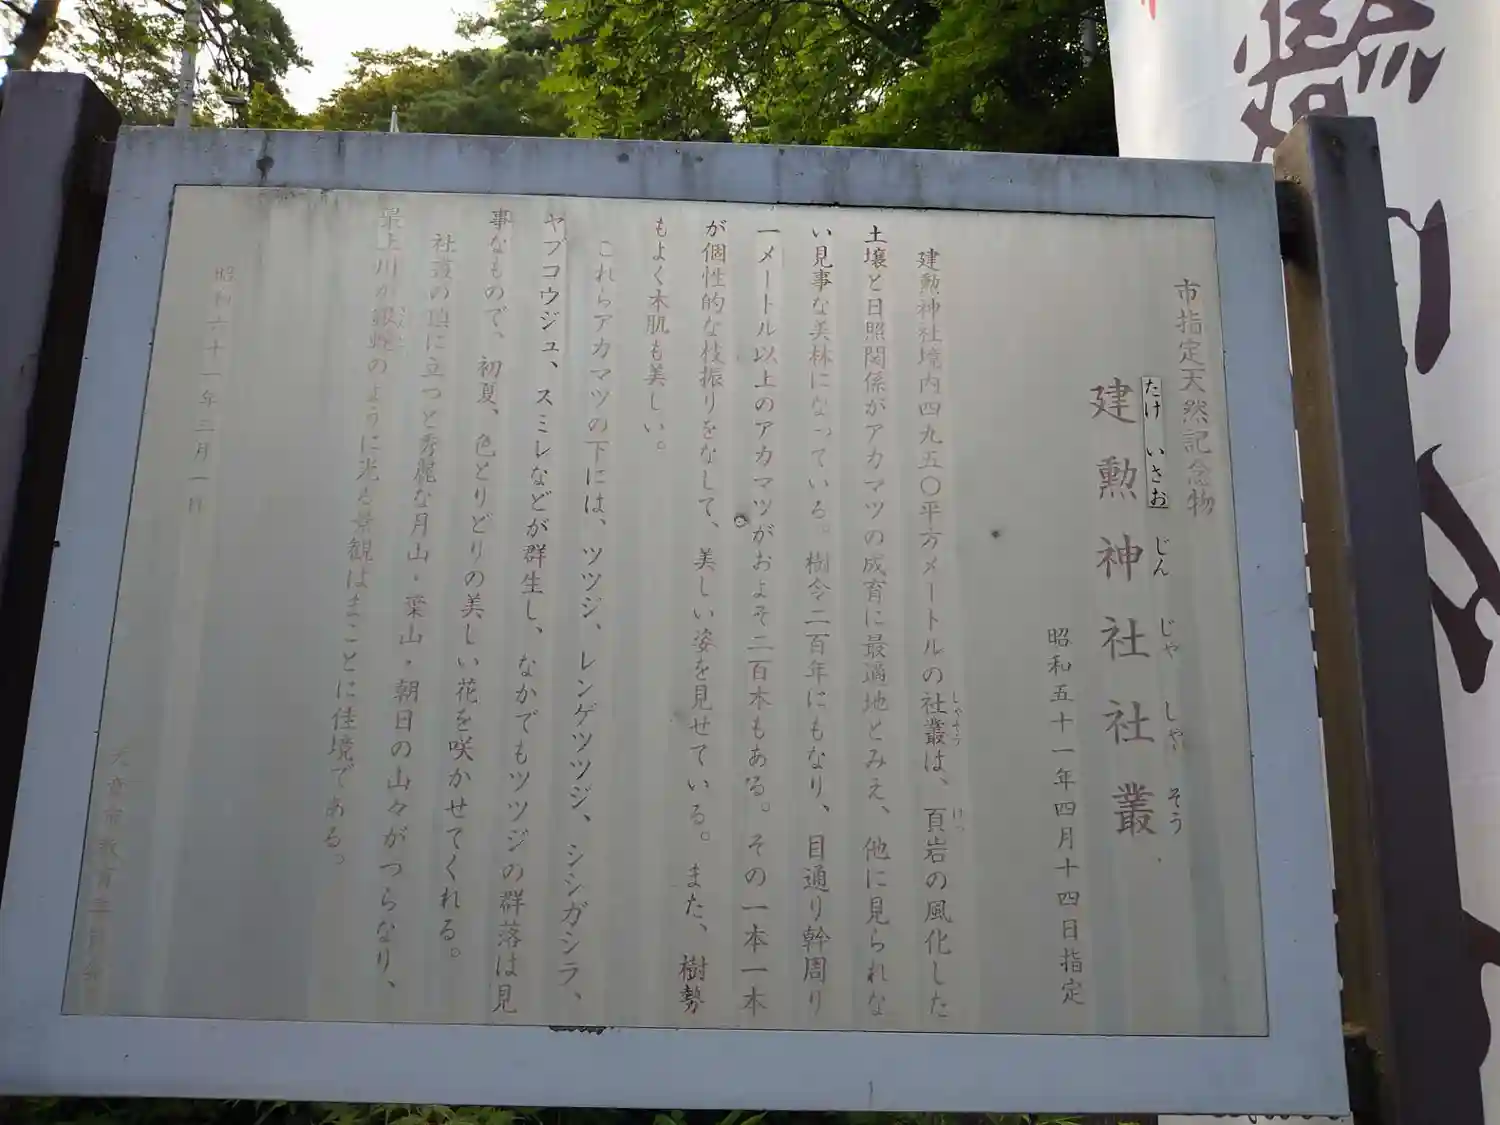 市指定天然記念物
建勲神社社叢
たけ いさお じん じゃ しゃ そう
昭和五十一年四月十四日指定
建勲神社境内四九五〇平方メートルの社叢は、頁岩の風化した
しゃそう
けつ
土壌と日照関係がアカマツの成育に最適地とみえ、他に見られな
い見事な美林になっている。樹令二百年にもなり、目通り幹周り
一メートル以上のアカマツがおよそ二百本もある。その一本一本
が個性的な枝振りをなして、美しい姿を見せている。また、樹勢
もよく木肌も美しい。
これらアカマツの下には、ツツジ、レンゲツツジ、シシガシラ、
ヤブコウジュ、スミレなどが群生し、なかでもツツジの群落は見
事なもので、初夏、色とりどりの美しい花を咲かせてくれる。
社頭の頂に立つと秀麗な月山・葉山・朝日の山々がつらなり、
最上川が銀蛇のように光る景観はまことに佳境である。
昭和六十一年三月一日
天童市教育委員会